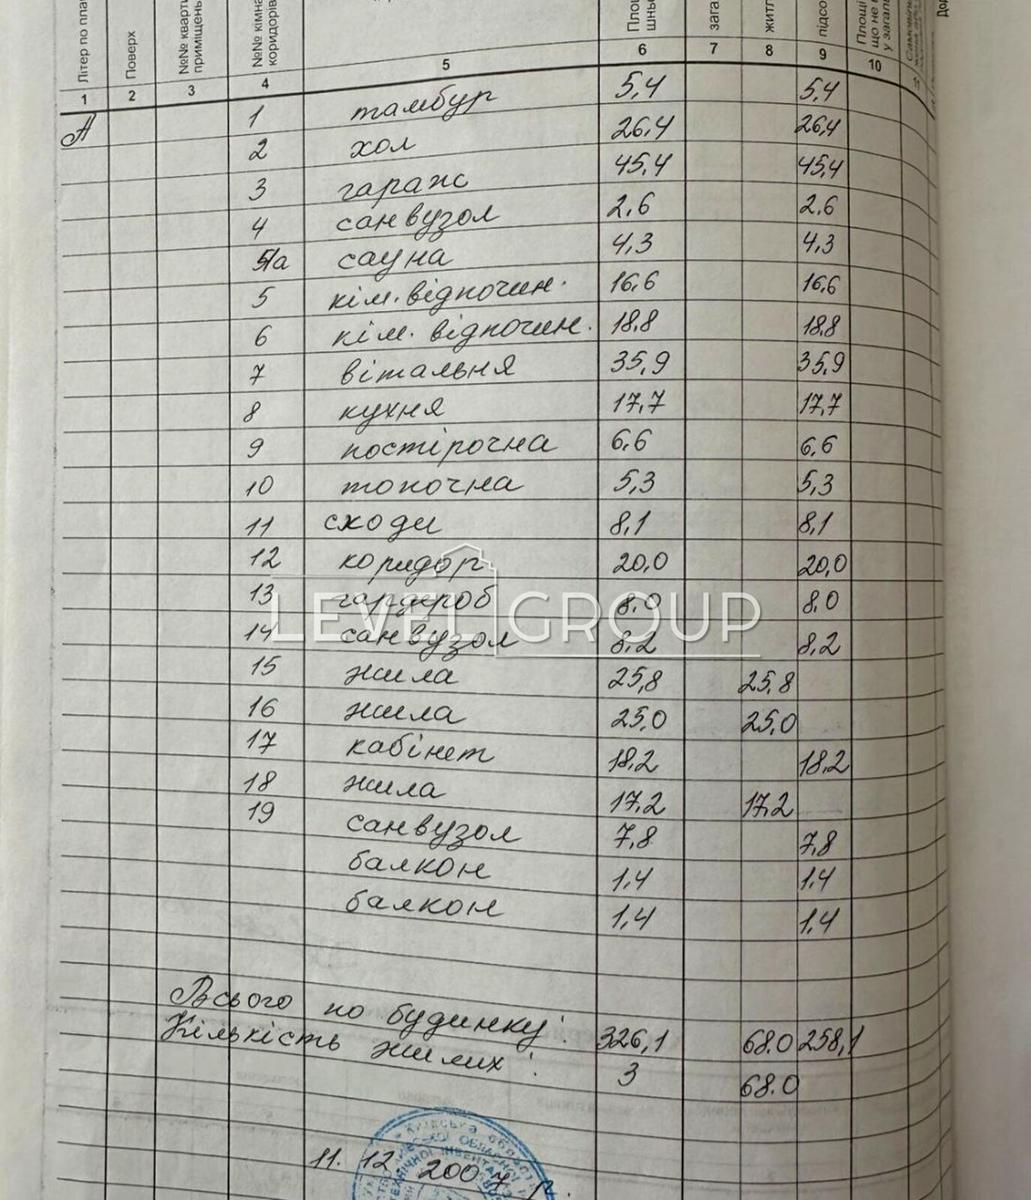 Літер по пла
Поверх
№№ кварти
приміщень
№№ кімна
коридорів
Пло
шнь
зага
житл
підсо
Площі
що не
у загал
1 2 3 4 5 6 7 8 9 10
А 1 тамбур 5,4 5,4
2 хол 26,4 26,4
3 гараж 45,4 45,4
4 санвузол 2,6 2,6
5/а сауна 4,3 4,3
5 кім. відпочин. 16,6 16,6
6 кім. відпочин. 18,8 18,8
7 вітальня 35,9 35,9
8 кухня 17,7 17,7
9 постірочна 6,6 6,6
10 топочна 5,3 5,3
11 сходи 8,1 8,1
12 коридор 20,0 20,0
13 гардероб 8,0 8,0
LEVEL GROUP
14 санвузол 8,2 8,2
15 жила 25,8 25,8
16 жила 25,0 25,0
17 кабінет 18,2 18,2
18 жила 17,2 17,2
19 санвузол 7,8 7,8
балкон 1,4 1,4
балкон 1,4 1,4
Всього по будинку: 326,1 68.0 258,1
Кількість жилих: 3 68.0
11. 12 2007 р.